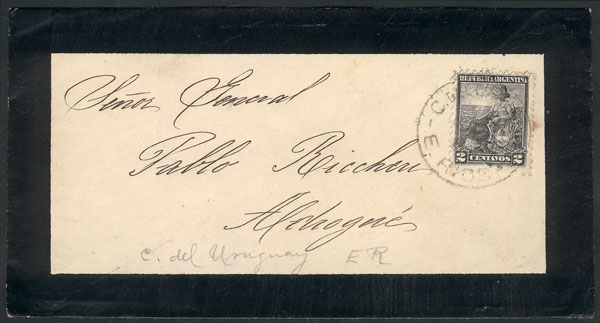 Señor General
Pablo Riccheri
Adrogué
C. del Uruguay ER
REPUBLICA ARGENTINA
2 CENTAVOS 2
E. RIOS